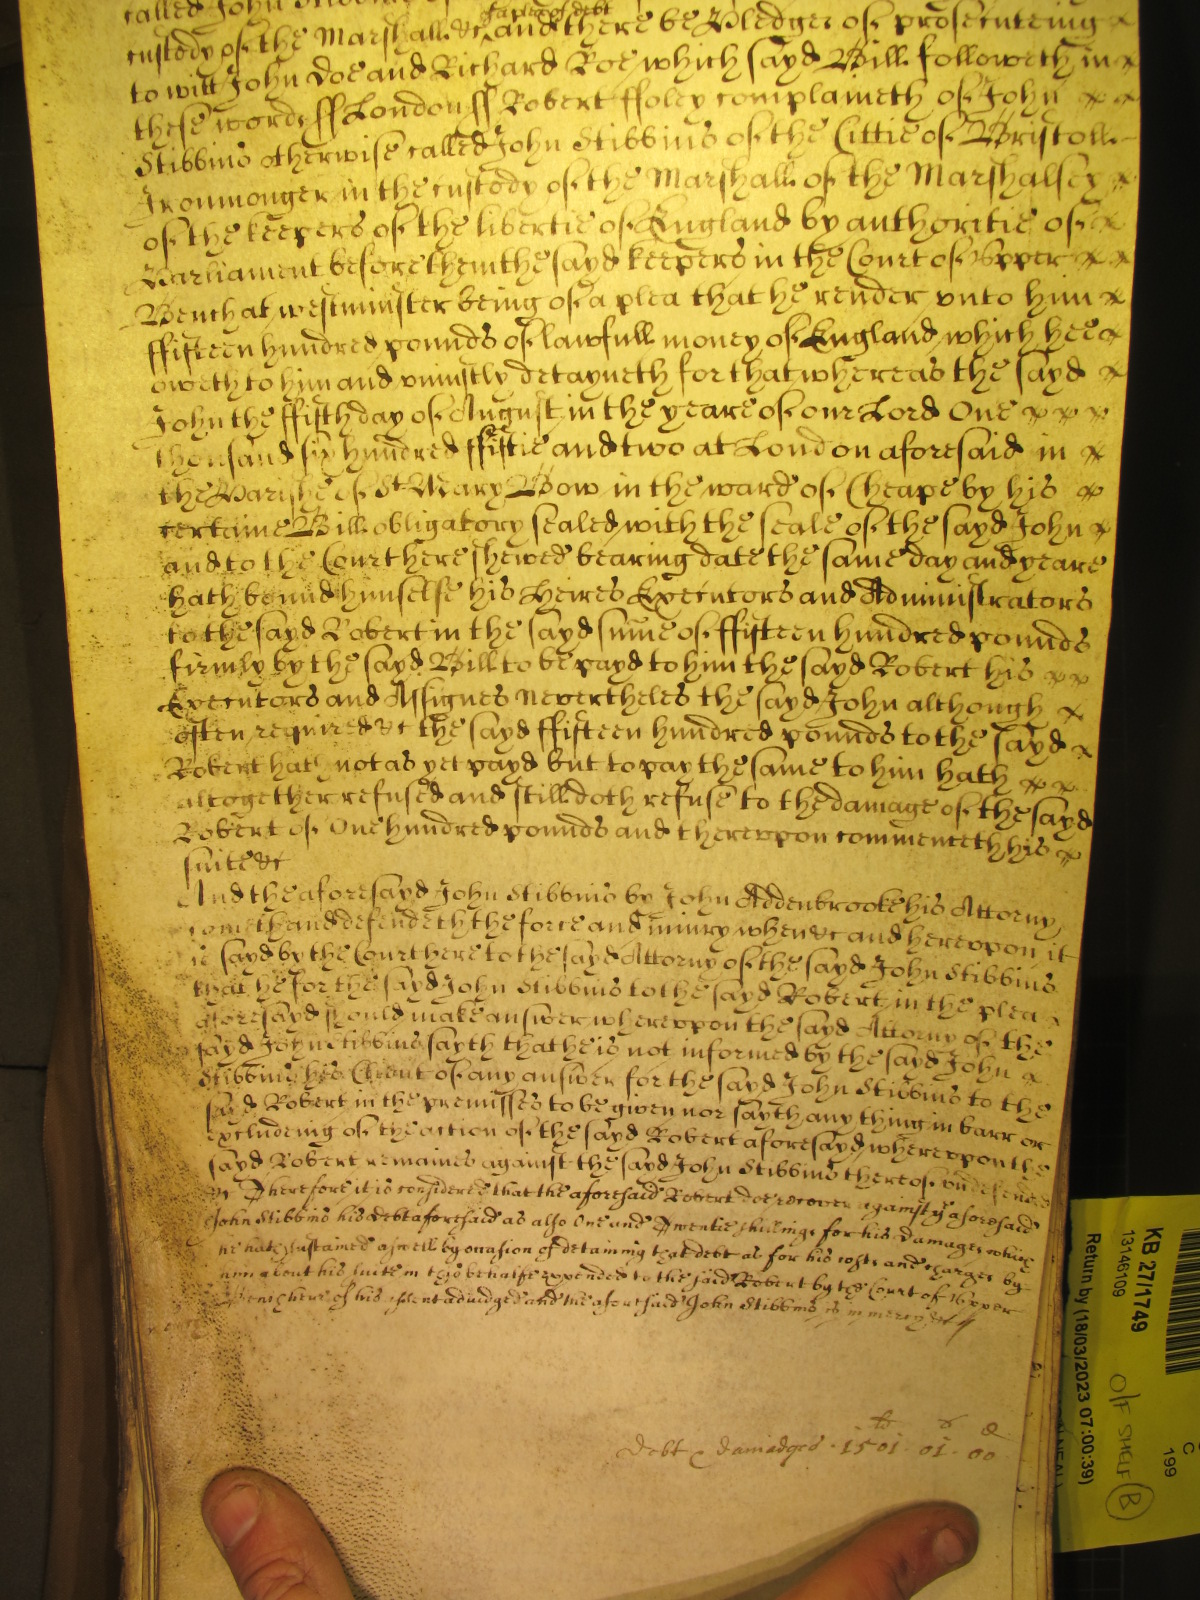 called John
of a plea of debt
custody of the Marshall &c and there be Pledges of prosecuteing
to witt John Doe and Richard Roe which sayd Bill followeth in
these wordes ss London ss Robert ffoley complaineth of John
Stibbins otherwise called John Stibbins of the Cittie of Bristoll
Ironmonger in the custody of the Marshall of the Marshalsey
of the keepers of the libertie of England by authoritie of
Parliament before them the sayd keepers in the Court of Upper
Bench at westminster being of a plea that he render vnto him
ffifteen hundred pounds of lawfull money of England which hee
oweth to him and vniustly detayneth for that whereas the sayd
John the ffifth day of August in the yeare of our Lord One
thousand six hundred ffiftie and two at London aforesaid in
the Parishe of St Mary Bow in the ward of Cheape by his
certaine Bill obligatory sealed with the seale of the sayd John
and to the Court here shewed bearing date the same day and yeare
hath bound himselfe his Heires Executors and Administrators
to the sayd Robert in the sayd sume of ffifteen hundred pounds
firmly by the sayd Bill to be payd to him the sayd Robert his
Executors and Assignes Nevertheles the sayd John although
often required &c the sayd ffifteen hundred pounds to the sayd
Robert hath not as yet payd but to pay the same to him hath
altogether refused and still doth refuse to the damage of the sayd
Robert of One hundred pounds and thereupon commenceth his
suite &c
And the aforesayd John Stibbins by John Addenbrooke his Attorny
cometh and defendeth the force and iniury when &c and hereupon it
is sayd by the Court here to the sayd Attorny of the sayd John Stibbins
that he for the sayd John Stibbins to the sayd Robert in the plea
aforesayd should make answer whereupon the sayd Attorny of the
sayd John Stibbins sayth that he is not informed by the sayd John
Stibbins his Client of any answer for the sayd John Stibbins to the
sayd Robert in the premisses to be given nor sayth any thing in barr or
excludeing of the action of the sayd Robert aforesayd whereupon the
sayd Robert remaines against the sayd John Stibbins thereof vndefended
&c Therefore it is considered that the aforesaid Robert doe recover against ye aforesaid
John Stibbins his debt aforesaid as also One and Twentie shillings for his damages which
he hath sustained aswell by occasion of detaining that debt as for his costs and charges by
him about his suite in this behalfe expended to the said Robert by the Court of Upper
Bench here of his assent adiudged and the aforesaid John Stibbins is in mercy &c
Debt & damadges 1501 01 00
li s d
KB 27/1749
13146109
Return by (18/03/2023 07:00:39)
C
199
B